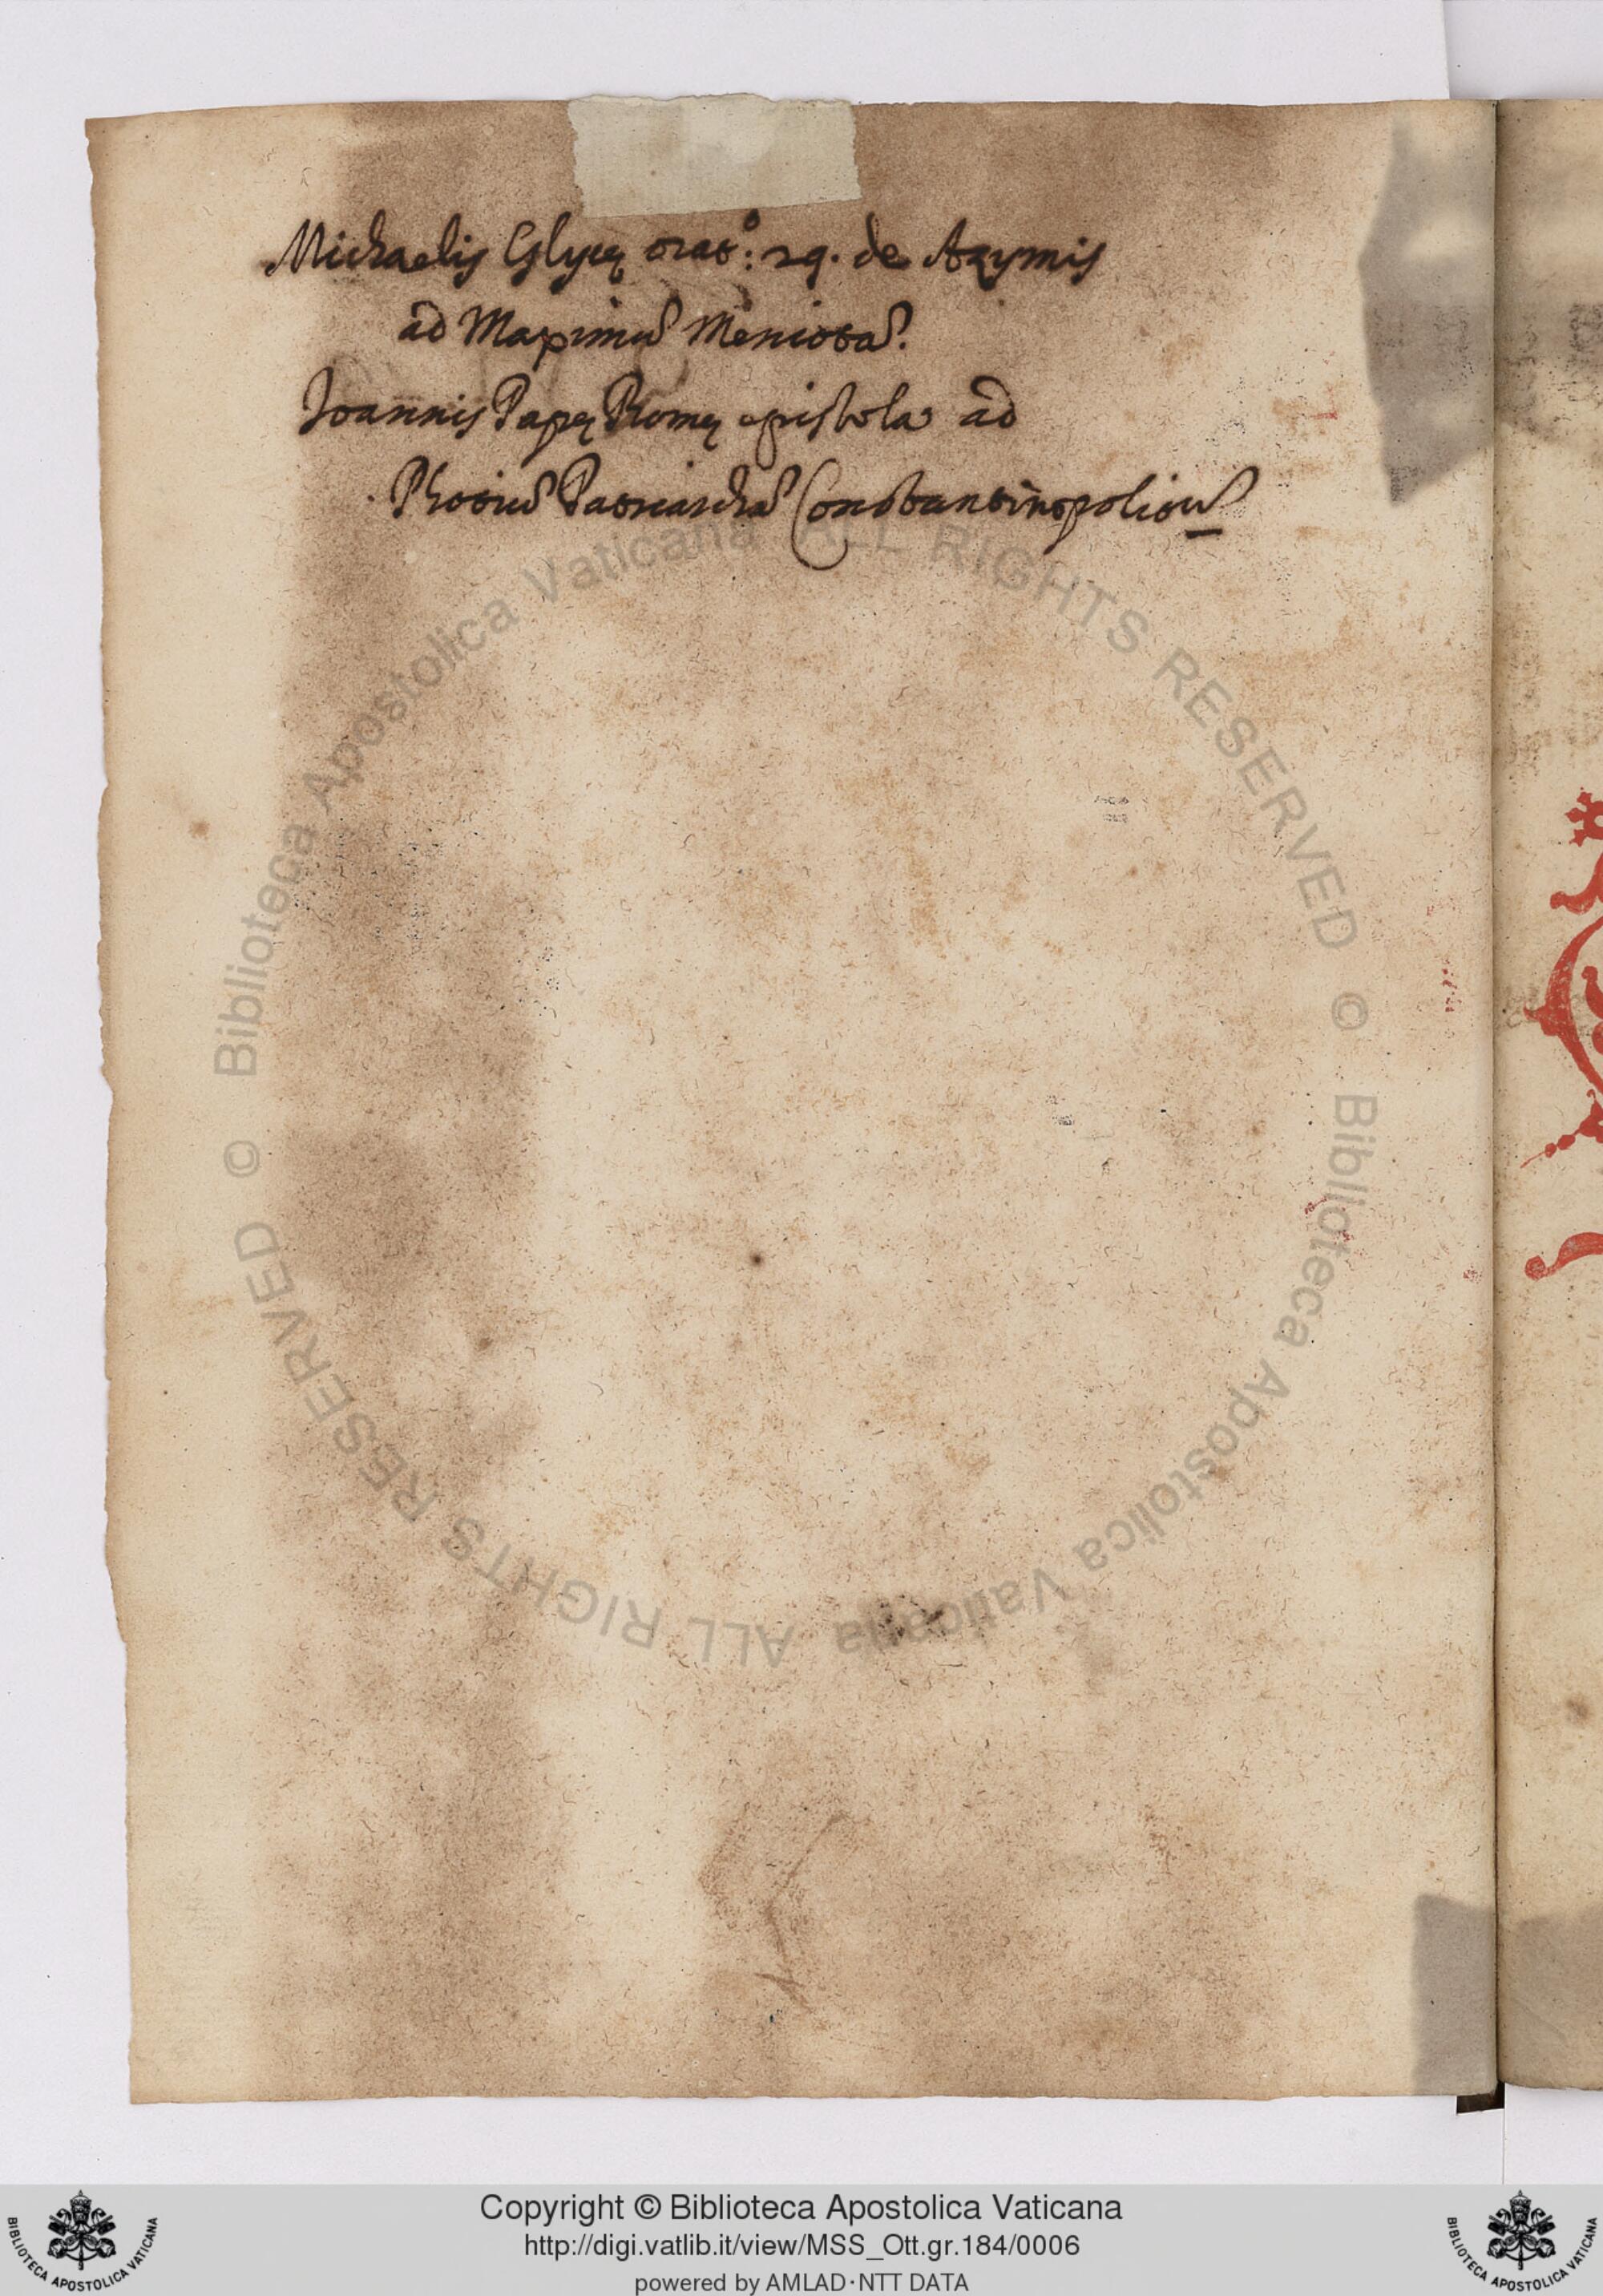 Michaelis Glycę orat.º: 29. de Azymis
ad Maximũ Meniotã.
Ioannis Papę Romę epistola ad
Photiũ Patriarchã Constantinopolitũ
© Biblioteca Apostolica Vaticana ALL RIGHTS RESERVED © Biblioteca Apostolica Vaticana ALL RIGHTS RESERVED
Copyright © Biblioteca Apostolica Vaticana
http://digi.vatlib.it/view/MSS_Ott.gr.184/0006
powered by AMLAD·NTT DATA
BIBLIOTECA APOSTOLICA VATICANA
BIBLIOTECA APOSTOLICA VATICANA